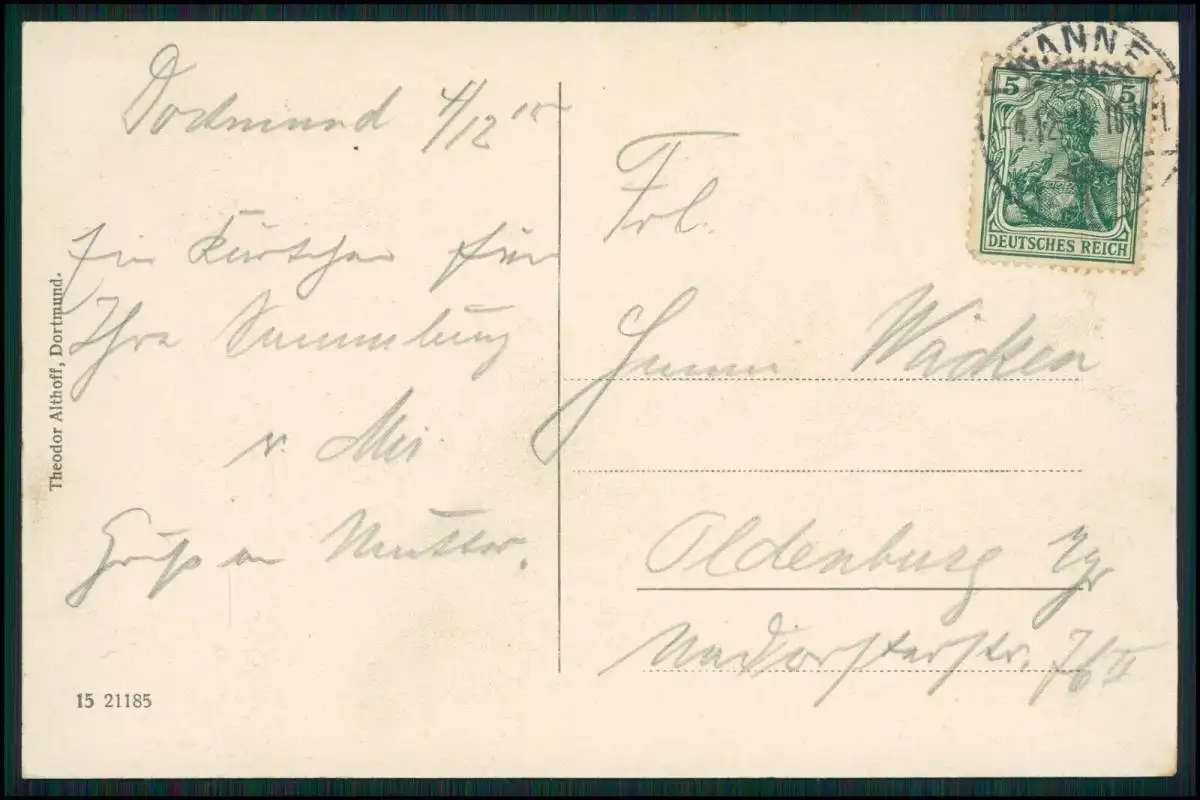 Dortmund 4/12 15
Ein Kärtchen für
Ihre Sammlung
v. Mir
Gruß an Mutter.
Theodor Althoff, Dortmund.
15 21185
WANNE
4.12
5 5
DEUTSCHES REICH
Frl.
Wäcken
Oldenburg i/gr
Nadorsterstr. 76 II